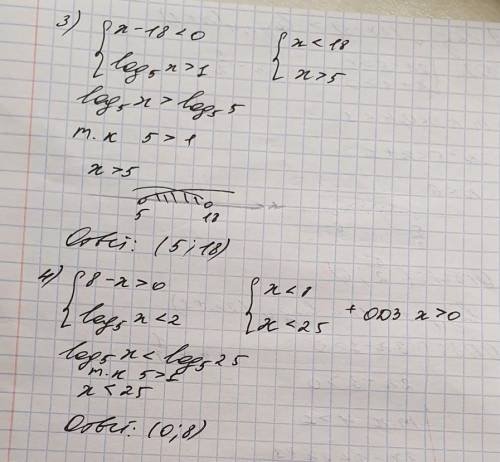 3) { x - 18 < 0 { x < 18
log₅ x > 1 x > 5
log₅ x > log₅ 5
т.к 5 > 1
x > 5
5 18
Ответ: (5; 18)
4) { 8 - x > 0 { x < 8
log₅ x < 2 x < 25 + ОДЗ x > 0
log₅ x < log₅ 25
т.к 5 > 1
x < 25
Ответ: (0; 8)